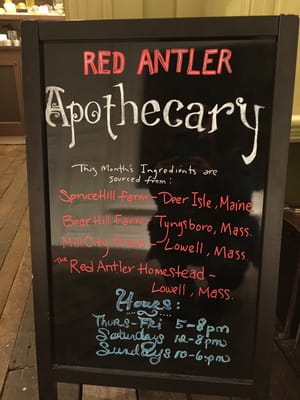 RED ANTLER
Apothecary
This Month's Ingredients are
sourced from:
Spruce Hill Farm - Deer Isle, Maine
Bear Hill Farm - Tyngsboro, Mass.
Mill City Grows - Lowell, Mass.
The Red Antler Homestead -
Lowell, Mass.
Hours:
Thurs-Fri 5-8pm
Saturdays 12-8pm
Sundays 10-6pm